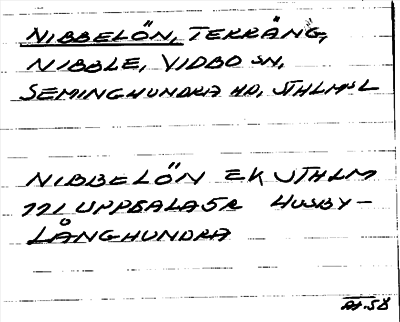 NIBBELÖN, TERRÄNG,
NIBBLE, VIDBO SN,
SEMINGHUNDRA HD, STHLMS L
NIBBELÖN EK STHLM
111 UPPSALA 5R HUSBY-
LÅNGHUNDRA